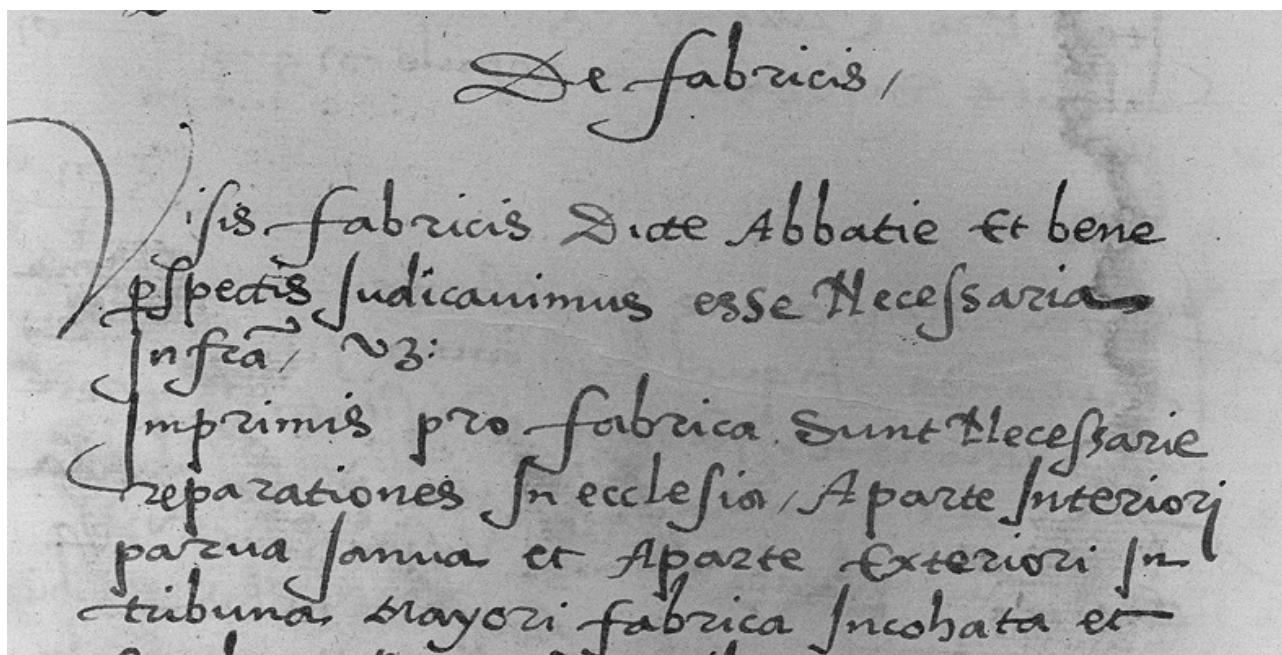 De fabricis /
Visis fabricis Dicte Abbatie Et bene
pspectis Judicauimus esse Necessaria
Infra / vz:
Imprimis pro fabrica Sunt Necessarie
reparationes In ecclesia / A parte Interiori
parua Janua et A parte Exteriori In
tribuna Mayori fabrica Incohata et